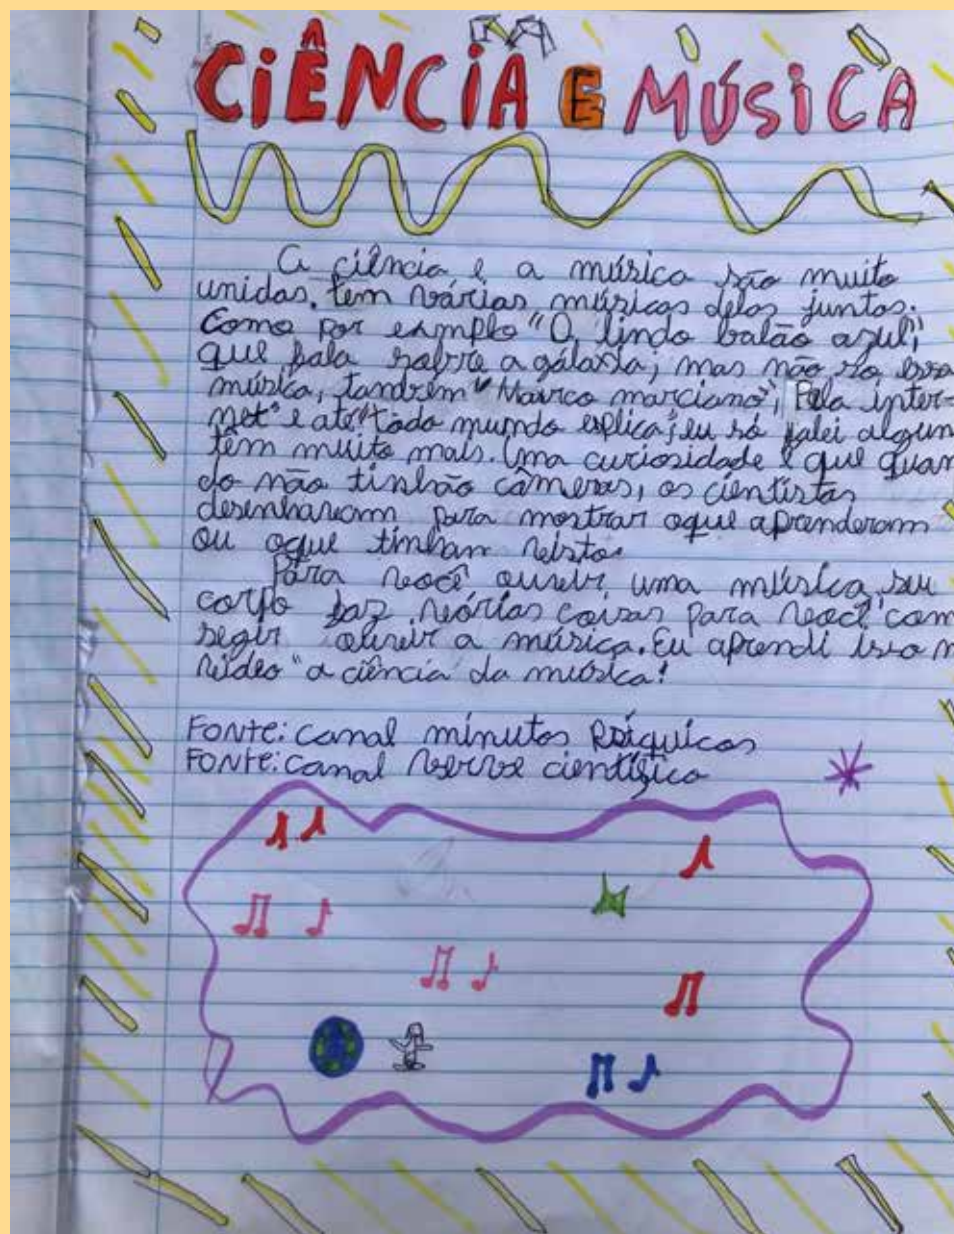 CIÊNCIA E MÚSICA
A ciência e a música são muito
unidas, tem várias músicas delas juntas.
Como por exmplo "O lindo balão azul",
que fala sobre a gálaxia, mas não só essa
música, também "Marco marciano", Pela inter-
net" e até "Todo mundo explica", eu só falei algun
têm muito mais. Uma curiosidade é que quan
do não tinhão câmeras, os cientistas
desenharam para mostrar oque aprenderam
ou oque tinham visto.
Para você ouvir uma música, seu
corpo faz várias coisas para você com
segir ouvir a música. Eu aprendi isso n
vídeo "a ciência da música!
FONTE: canal minutos Psíquicos
FONTE: canal verve científica